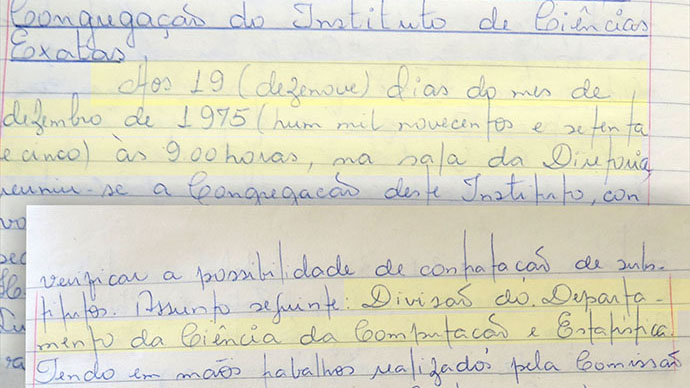 Congregação do Instituto de Ciências
Exatas
Aos 19 (dezenove) dias do mes de
dezembro de 1975 (hum mil novecentos e setenta
e cinco) às 9:00 horas, na sala da Diretoria,
reuniu-se a Congregação deste Instituto, con
vo
verificar a possibilidade de contratação de subs-
titutos. Assunto seguinte: Divisão do Departa-
mento da Ciência da Computação e Estatística.
Tendo em mãos trabalhos realizados pela Comissão